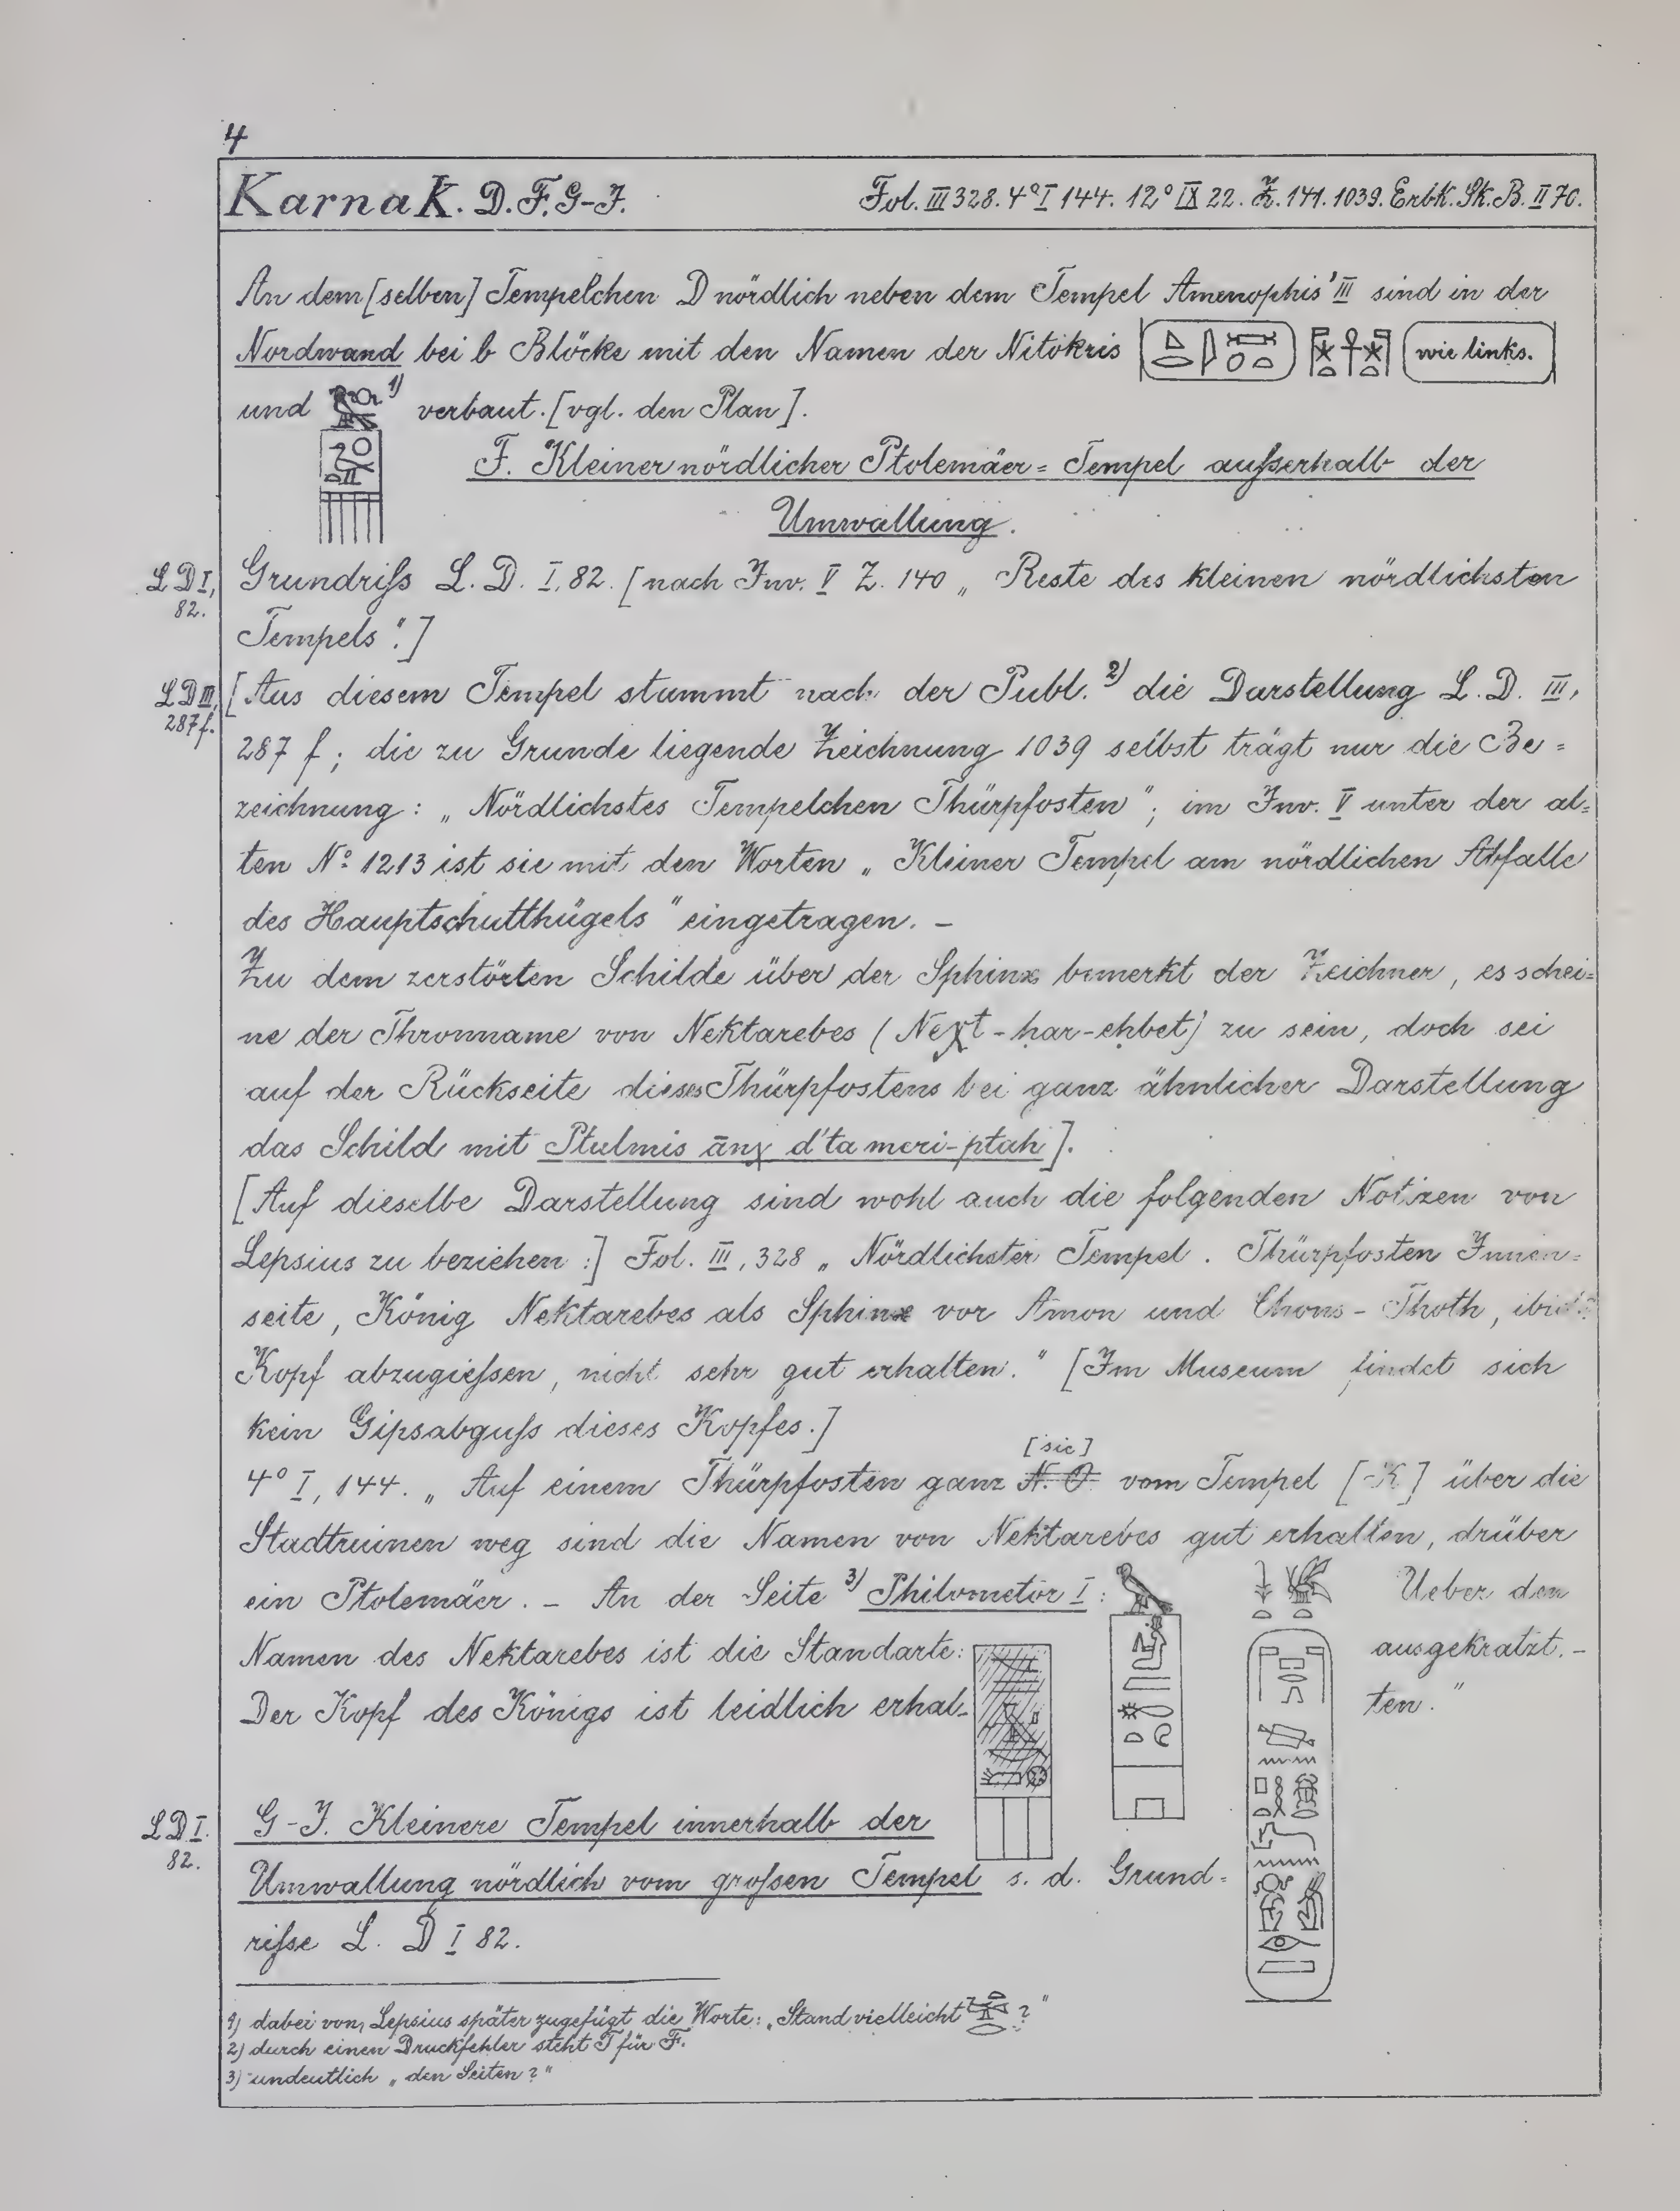 4
Karnak. D. F. G-J.
Fol. III 328. 4° I 144. 12° IX 22. Z. 141. 1039. Erbk. Sk. B. II 70.
An dem [selben] Tempelchen D nördlich neben dem Tempel Amenophis' III sind in der
Nordwand bei b Blöcke mit den Namen der Nitokris wie links.
und 1) verbaut. [vgl. den Plan].
F. Kleiner nördlicher Ptolemäer = Tempel außerhalb der
Umwallung.
L D I,
82.
Grundriß L. D. I, 82. [nach Inv. V Z. 140 „Reste des kleinen nördlichsten
Tempels".]
L D III,
287 f.
[Aus diesem Tempel stammt nach der Publ. 2) die Darstellung L. D. III,
287 f; die zu Grunde liegende Zeichnung 1039 selbst trägt nur die Be=
zeichnung: „Nördlichstes Tempelchen Thürpfosten"; im Inv. V unter der al=
ten No. 1213 ist sie mit den Worten „Kleiner Tempel am nördlichen Abfalle
des Hauptschutthügels" eingetragen. –
Zu dem zerstörten Schilde über der Sphinx bemerkt der Zeichner, es schei=
ne der Thronname von Nektarebes (Neχt-ḥar-eḥbet) zu sein, doch sei
auf der Rückseite dieses Thürpfostens bei ganz ähnlicher Darstellung
das Schild mit Ptulmis ānχ d'ta meri-ptah].
[Auf dieselbe Darstellung sind wohl auch die folgenden Notizen von
Lepsius zu beziehen:] Fol. III, 328 „Nördlichster Tempel. Thürpfosten Innen=
seite, König Nektarebes als Sphinx vor Amon und Chons-Thoth,
Kopf abzugießen, nicht sehr gut erhalten." [Im Museum findet sich
kein Gipsabguß dieses Kopfes.]
[sic]
4° I, 144. „Auf einem Thürpfosten ganz N. O. vom Tempel [K] über die
Stadtruinen weg sind die Namen von Nektarebes gut erhalten, drüber
ein Ptolemäer. – An der Seite 3) Philometor I: Ueber den
Namen des Nektarebes ist die Standarte: ausgekratzt. –
Der Kopf des Königs ist leidlich erhal- ten."
L D I.
82.
G-J. Kleinere Tempel innerhalb der
Umwallung nördlich vom großen Tempel s. d. Grund=
riße L. D I 82.
1) dabei von Lepsius später zugefügt die Worte: „Stand vielleicht ?"
2) durch einen Druckfehler steht T für F.
3) undeutlich „den Seiten?"